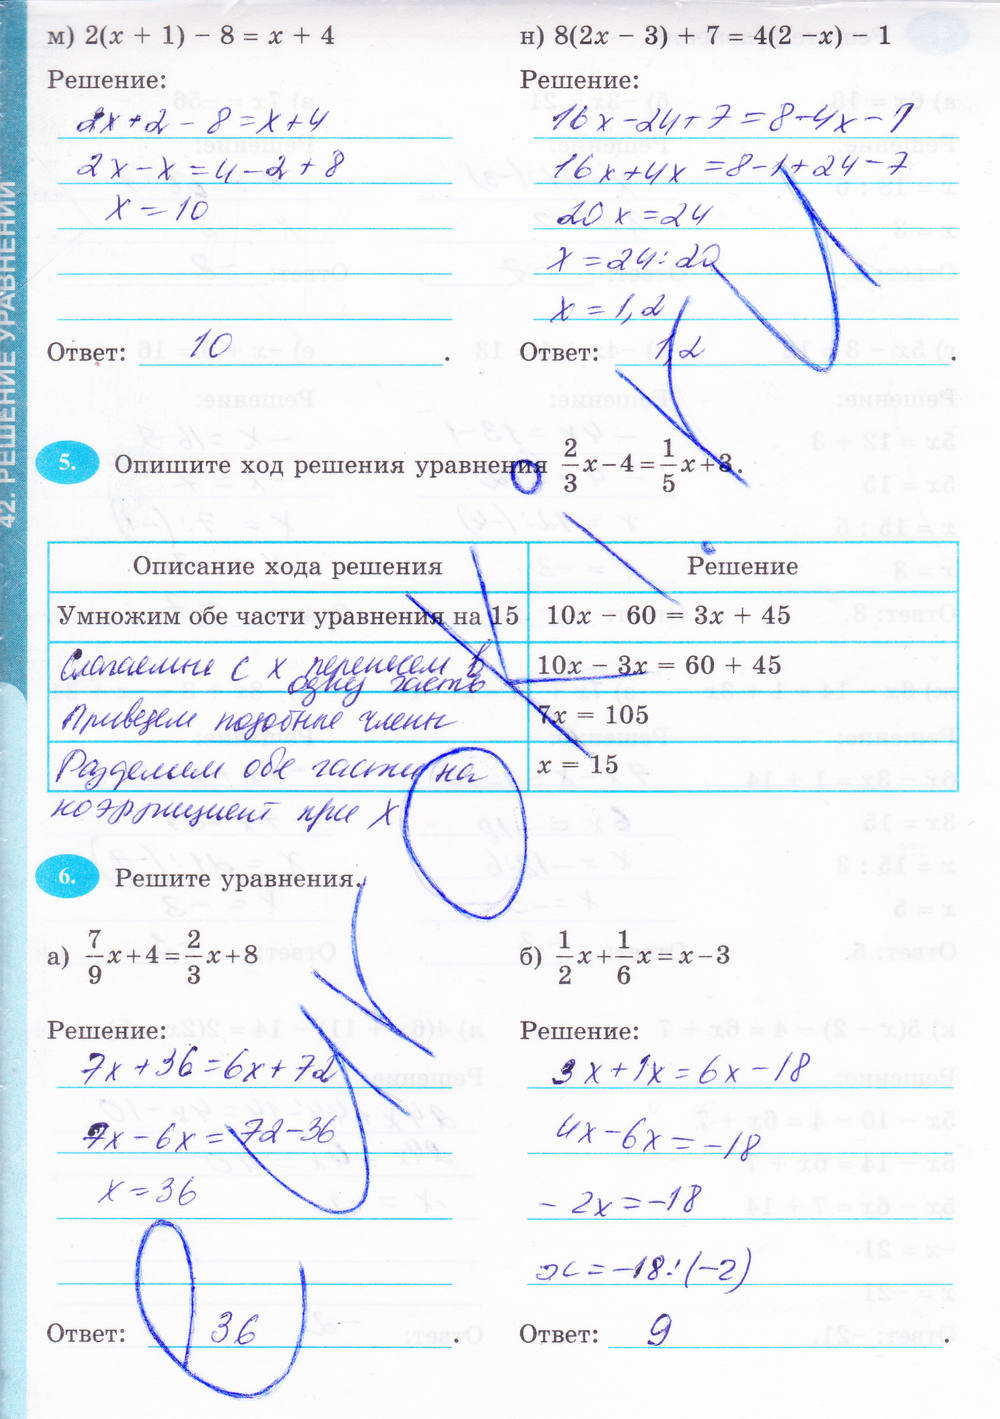 м) 2(x + 1) − 8 = x + 4
Решение:
2x+2 − 8 = x+4
2x−x = 4−2+8
x = 10
Ответ: 10.
н) 8(2x − 3) + 7 = 4(2 −x) − 1
Решение:
16x−24+7 = 8−4x−1
16x+4x = 8−1+24−7
20x = 24
x = 24:20
x = 1,2
Ответ: 1,2.
42. РЕШЕНИЕ УРАВНЕНИЙ
5. Опишите ход решения уравнения 2/3 x − 4 = 1/5 x + 3.
Описание хода решения
Решение
Умножим обе части уравнения на 15
10x − 60 = 3x + 45
Слагаемые с x перенесем в
одну часть
10x − 3x = 60 + 45
Приведем подобные члены
7x = 105
Разделим обе части на
коэффициент при x
x = 15
6. Решите уравнения.
а) 7/9 x + 4 = 2/3 x + 8
Решение:
7x+36=6x+72
7x−6x = 72−36
x = 36
Ответ: 36.
б) 1/2 x + 1/6 x = x − 3
Решение:
3x+1x = 6x−18
4x−6x = −18
−2x = −18
x = −18:(−2)
Ответ: 9.